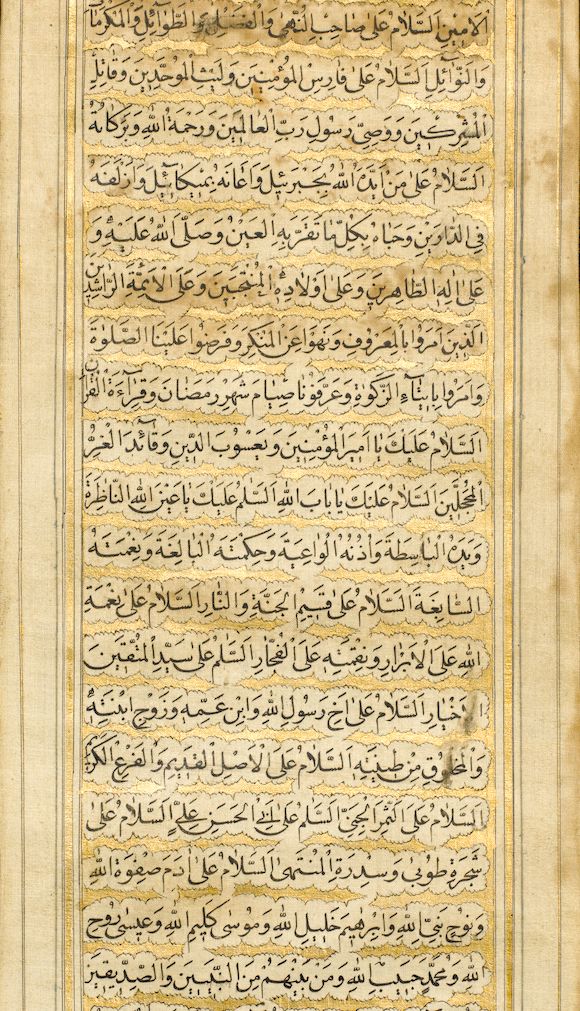 الاَمينِ اَلسَّلامُ عَلىٰ صاحِبِ النُّهىٰ وَالْفَضْلِ وَالطَّوٰآئِلِ وَالْمَكْرُماتِ
وَالنَّوٰآئِلِ اَلسَّلامُ عَلىٰ فارِسِ الْمُؤْمِنينَ وَلَيْثِ الْمُوَحِّدينَ وَقاتِلِ
الْمُشْرِكينَ وَوَصِىِّ رَسُولِ رَبِّ الْعالَمينَ وَرَحْمَةُ اللهِ وَبَرَكاتُهُ
اَلسَّلامُ عَلىٰ مَنْ اَيَّدَهُ اللهُ بِجَبْرَئيلَ وَاَعانَهُ بِميكآئيلَ وَاَزْلَفَهُ
فِى الدّارَيْنِ وَحَباهُ بِكُلِّ ما تَقَرُّ بِهِ الْعَيْنُ وَصَلَّى اللهُ عَلَيْهِ وَ
عَلىٰ الِهِ الطّاهِرينَ وَعَلىٰ اَوْلادِهِ الْمُنْتَجَبينَ وَعَلَى الاَئِمَّةِ الرّاشِدينَ
الَّذينَ اَمَرُوا بِالْمَعْرُوفِ وَنَهَوْا عَنِ الْمُنْكَرِ وَفَرَضُوا عَلَيْنَا الصَّلوٰةَ
وَاَمَرُوا بِايتآءِ الزَّكوٰةِ وَعَرَّفُونا صِيامَ شَهْرِ رَمَضانَ وَقِرآءَةَ الْقُرْانِ
اَلسَّلامُ عَلَيْكَ يا اَميرَ الْمُؤْمِنينَ وَيَعْسُوبَ الدّينِ وَقآئِدَ الْغُرِّ
الْمُحَجَّلينَ اَلسَّلامُ عَلَيْكَ يا بابَ اللهِ اَلسَّلٰمُ عَلَيْكَ يا عَيْنَ اللهِ النّاظِرَةَ
وَيَدَهُ الْباسِطَةَ وَاُذُنَهُ الْواعِيَةَ وَحِكْمَتَهُ الْبالِغَةَ وَنِعْمَتَهُ
السّابِغَةَ اَلسَّلامُ عَلىٰ قَسيمِ الْجَنَّةِ وَالنّارِ اَلسَّلامُ عَلىٰ نِعْمَةِ
اللهِ عَلَى الْاَبْرارِ وَنِقْمَتِهِ عَلَى الْفُجّارِ اَلسَّلٰمُ عَلىٰ سَيِّدِ الْمُتَّقينَ
الْاَخْيارِ اَلسَّلامُ عَلىٰ اَخِ رَسُولِ اللهِ وَابْنِ عَمِّهِ وَزَوْجِ ابْنَتِهِ
وَالْمَخْلُوقِ مِنْ طينَتِهِ اَلسَّلامُ عَلَى الْاَصْلِ الْقَديمِ وَالْفَرْعِ الْكَريمِ
اَلسَّلامُ عَلَى الثَّمَرِ الْجَنِىِّ اَلسَّلٰمُ عَلىٰ اَبِى الْحَسَنِ عَلِىٍّ اَلسَّلامُ عَلىٰ
شَجَرَةِ طُوبىٰ وَسِدْرَةِ الْمُنْتَهىٰ اَلسَّلامُ عَلىٰ ادَمَ صَفْوَةِ اللهِ
وَنُوحٍ نَبِىِّ اللهِ وَاِبْرٰهيمَ خَليلِ اللهِ وَمُوسىٰ كَليمِ اللهِ وَعيسىٰ رُوحِ
اللهِ وَمُحَمَّدٍ حَبيبِ اللهِ وَمَنْ بَيْنَهُمْ مِنَ النَّبِيّينَ وَالصِّدّيقينَ